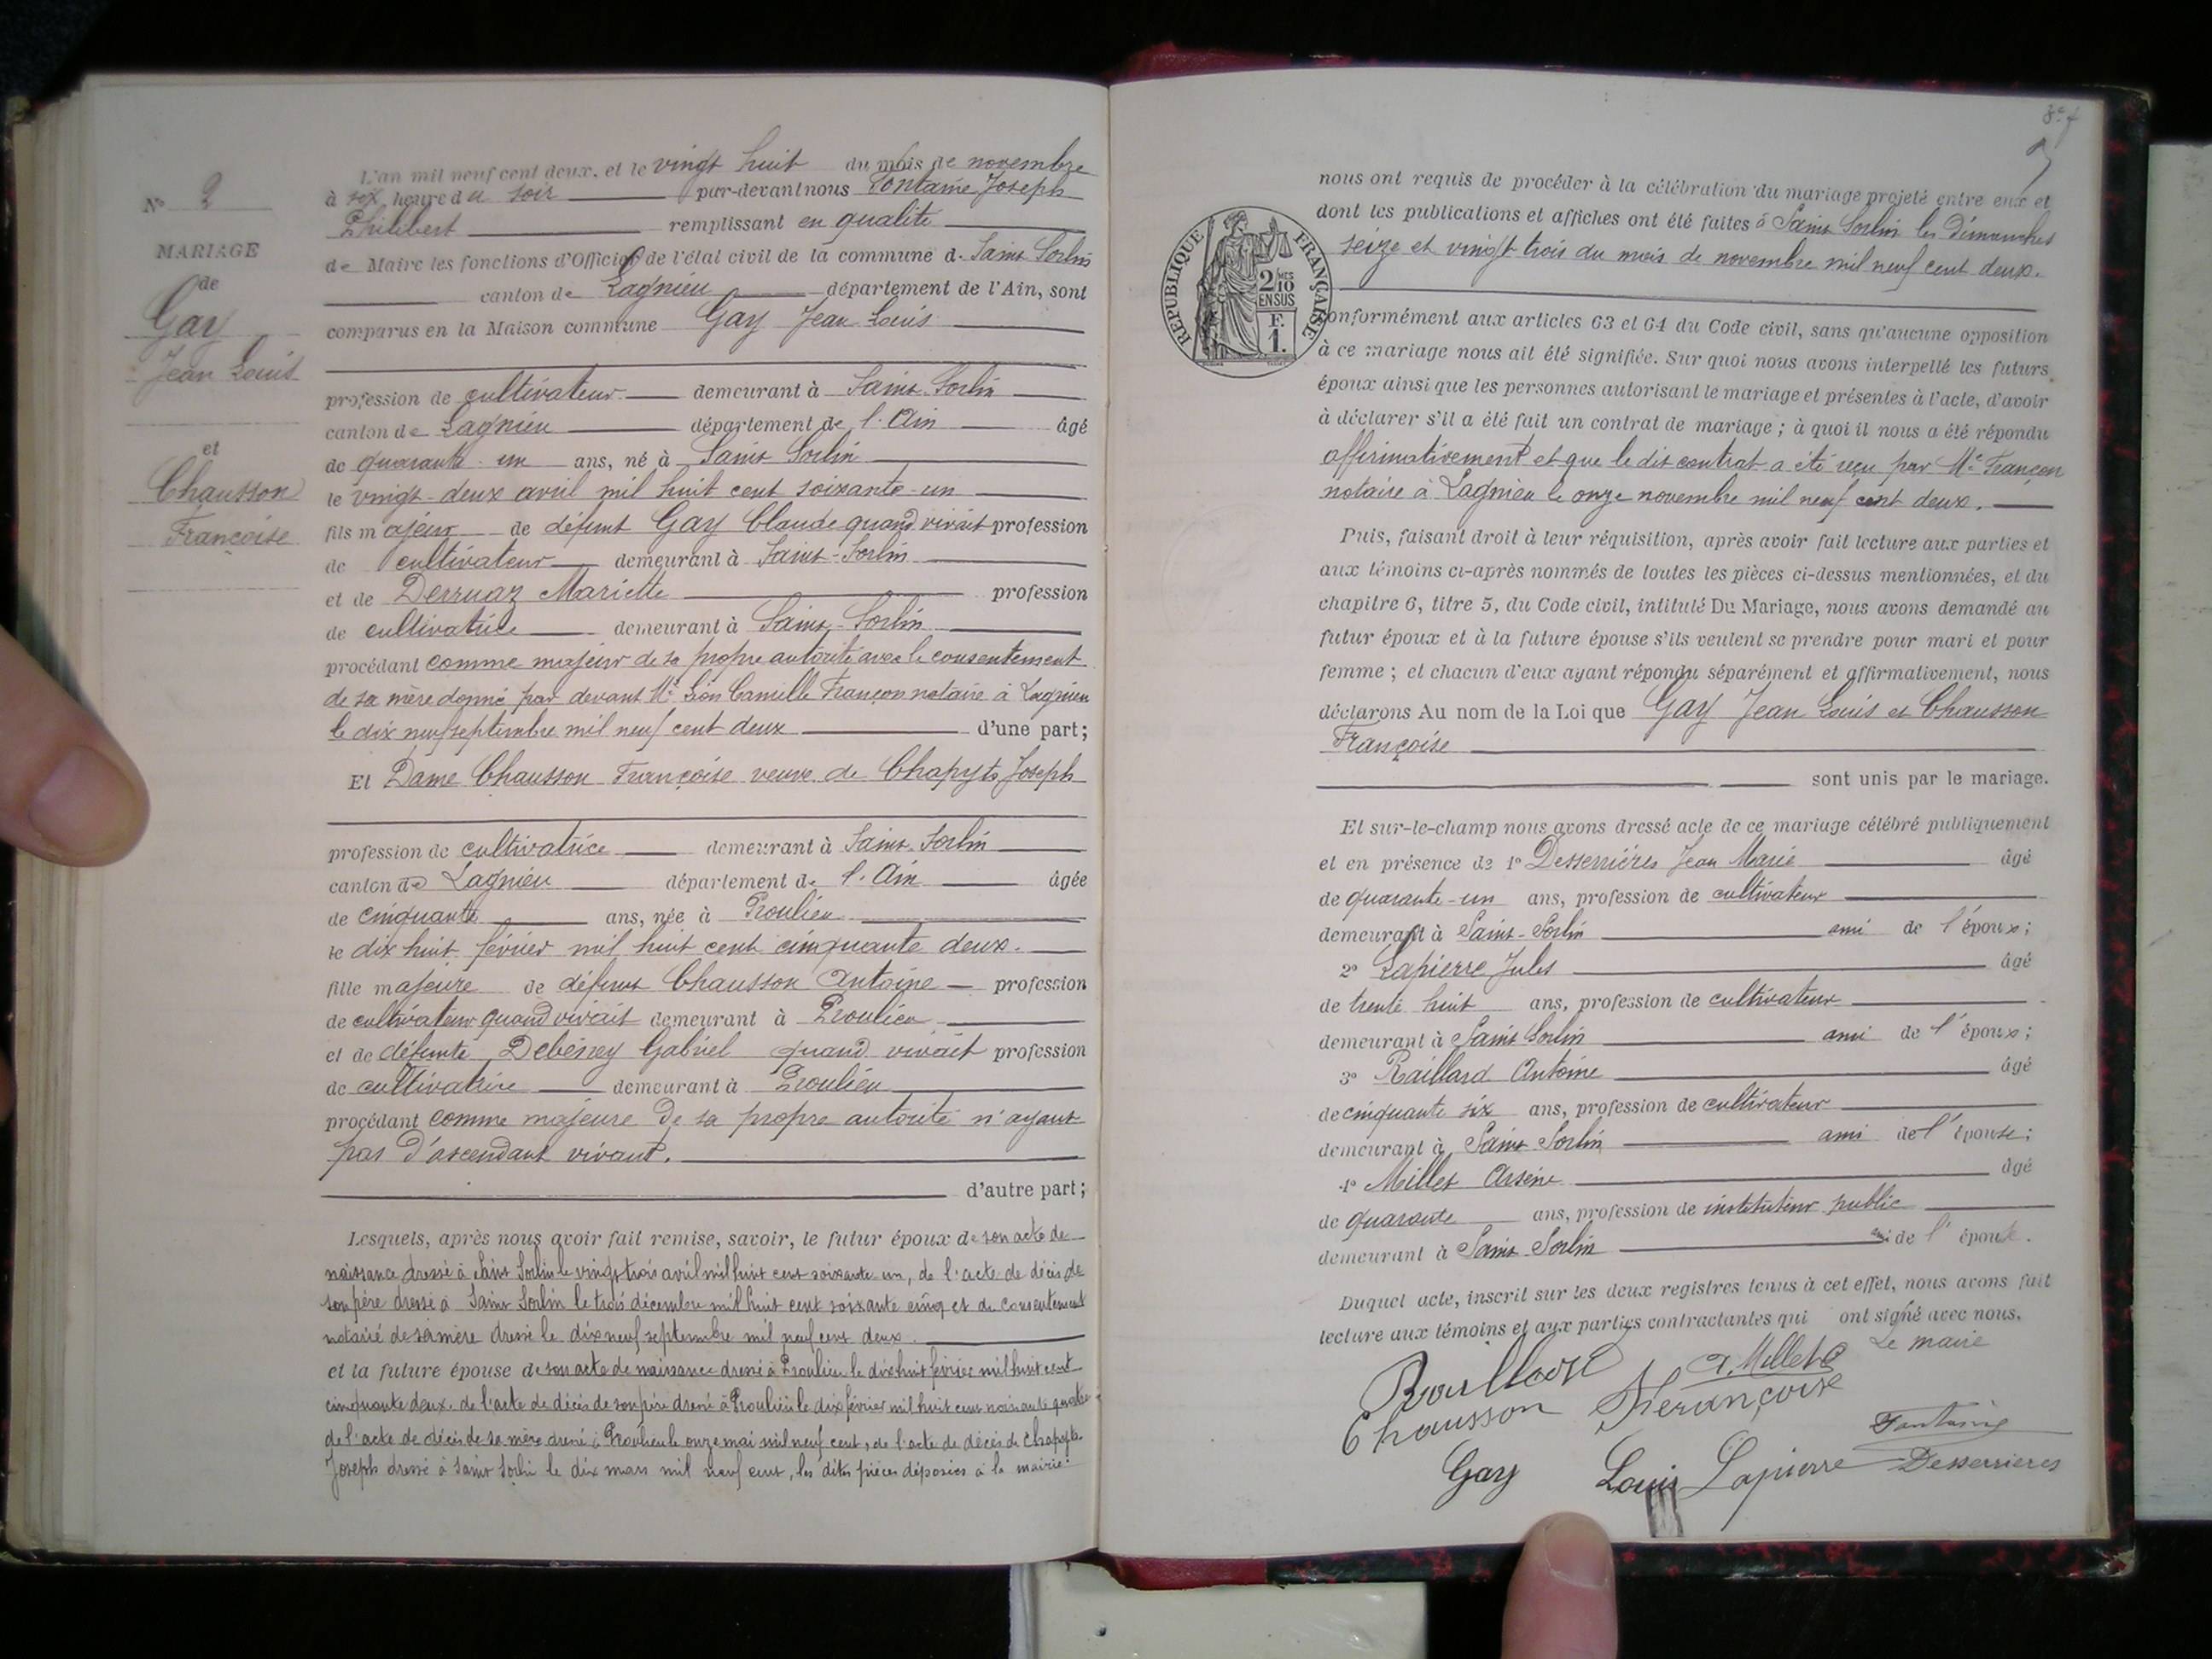 N° 2
MARIAGE
de
Gay
Jean Louis
et
Chausson
Françoise
L'an mil neuf cent deux, et le vingt huit du mois de novembre
à six heure du soir par-devant nous Fontaine Joseph
Philibert remplissant en qualité
de Maire les fonctions d'Officier de l'état civil de la commune de Saint Sorlin
canton de Lagnieu département de l'Ain, sont
comparus en la Maison commune Gay Jean Louis
profession de cultivateur demeurant à Saint-Sorlin
canton de Lagnieu département de l'Ain âgé
de quarante-un ans, né à Saint Sorlin
le vingt-deux avril mil huit cent soixante-un
fils majeur de défunt Gay Claude quand vivait profession
de cultivateur demeurant à Saint-Sorlin
et de Derruaz Mariette profession
de cultivatrice demeurant à Saint-Sorlin
procédant comme majeur de sa propre autorité avec le consentement
de sa mère donné par devant Me Léon Camille Françon notaire à Lagnieu
le dix neuf septembre mil neuf cent deux d'une part;
Et Dame Chausson Françoise veuve de Chapyts Joseph
profession de cultivatrice demeurant à Saint-Sorlin
canton de Lagnieu département de l'Ain âgée
de cinquante ans, née à Proulieu
le dix huit février mil huit cent cinquante deux.
fille majeure de défunt Chausson Antoine profession
de cultivateur quand vivait demeurant à Proulieu
et de défunte Debeney Gabriel quand vivait profession
de cultivatrice demeurant à Proulieu
procédant comme majeure de sa propre autorité n'ayant
pas d'ascendant vivant.
d'autre part;
Lesquels, après nous avoir fait remise, savoir, le futur époux de son acte de
naissance dressé à Saint Sorlin le vingt trois avril mil huit cent soixante un, de l'acte de décès de
son père dressé à Saint Sorlin le trois décembre mil huit cent soixante cinq et du consentement
notarié de sa mère dressé le dix neuf septembre mil neuf cent deux.
et la future épouse de son acte de naissance dressé à Proulieu le dix huit février mil huit cent
cinquante deux, de l'acte de décès de son père dressé à Proulieu le dix février mil huit cent soixante quatre
de l'acte de décès de sa mère dressé à Proulieu le onze mai mil neuf cent, de l'acte de décès de Chapyts
Joseph dressé à Saint Sorlin le dix mars mil neuf cent, les dites pièces déposées à la mairie.
nous ont requis de procéder à la célébration du mariage projeté entre eux et
dont les publications et affiches ont été faites à Saint Sorlin les dimanches
seize et vingt trois du mois de novembre mil neuf cent deux.
RÉPUBLIQUE FRANÇAISE
2/10 MES
EN SUS
F.
1.
conformément aux articles 63 et 64 du Code civil, sans qu'aucune opposition
à ce mariage nous ait été signifiée. Sur quoi nous avons interpellé les futurs
époux ainsi que les personnes autorisant le mariage et présentes à l'acte, d'avoir
à déclarer s'il a été fait un contrat de mariage; à quoi il nous a été répondu
affirmativement et que le dit contrat a été reçu par Me Françon
notaire à Lagnieu le onze novembre mil neuf cent deux.
Puis, faisant droit à leur réquisition, après avoir fait lecture aux parties et
aux témoins ci-après nommés de toutes les pièces ci-dessus mentionnées, et du
chapitre 6, titre 5, du Code civil, intitulé Du Mariage, nous avons demandé au
futur époux et à la future épouse s'ils veulent se prendre pour mari et pour
femme; et chacun d'eux ayant répondu séparément et affirmativement, nous
déclarons Au nom de la Loi que Gay Jean Louis et Chausson
Françoise
sont unis par le mariage.
Et sur-le-champ nous avons dressé acte de ce mariage célébré publiquement
et en présence de 1° Desserrières Jean Marie âgé
de quarante-un ans, profession de cultivateur
demeurant à Saint-Sorlin ami de l'époux;
2° Lapierre Jules âgé
de trente huit ans, profession de cultivateur
demeurant à Saint Sorlin ami de l'époux;
3° Raillard Antoine âgé
de cinquante six ans, profession de cultivateur
demeurant à Saint-Sorlin ami de l'épouse;
4° Millet Arsène âgé
de quarante ans, profession de instituteur public
demeurant à Saint-Sorlin ami de l'épouse.
Duquel acte, inscrit sur les deux registres tenus à cet effet, nous avons fait
lecture aux témoins et aux parties contractantes qui ont signé avec nous.
Le maire
A. Millet
Chausson
Fontaine
Gay Louis Lapierre Desserrieres